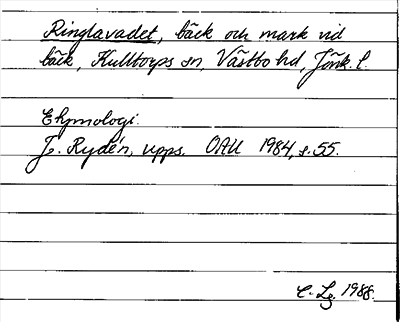 Ringlavadet, bäck och mark vid
bäck, Kulltorps sn, Västbo hd, Jönk. l.
Etymologi.
J. Rydén, upps. OAU 1984, s. 55.
C. Lg. 1988.